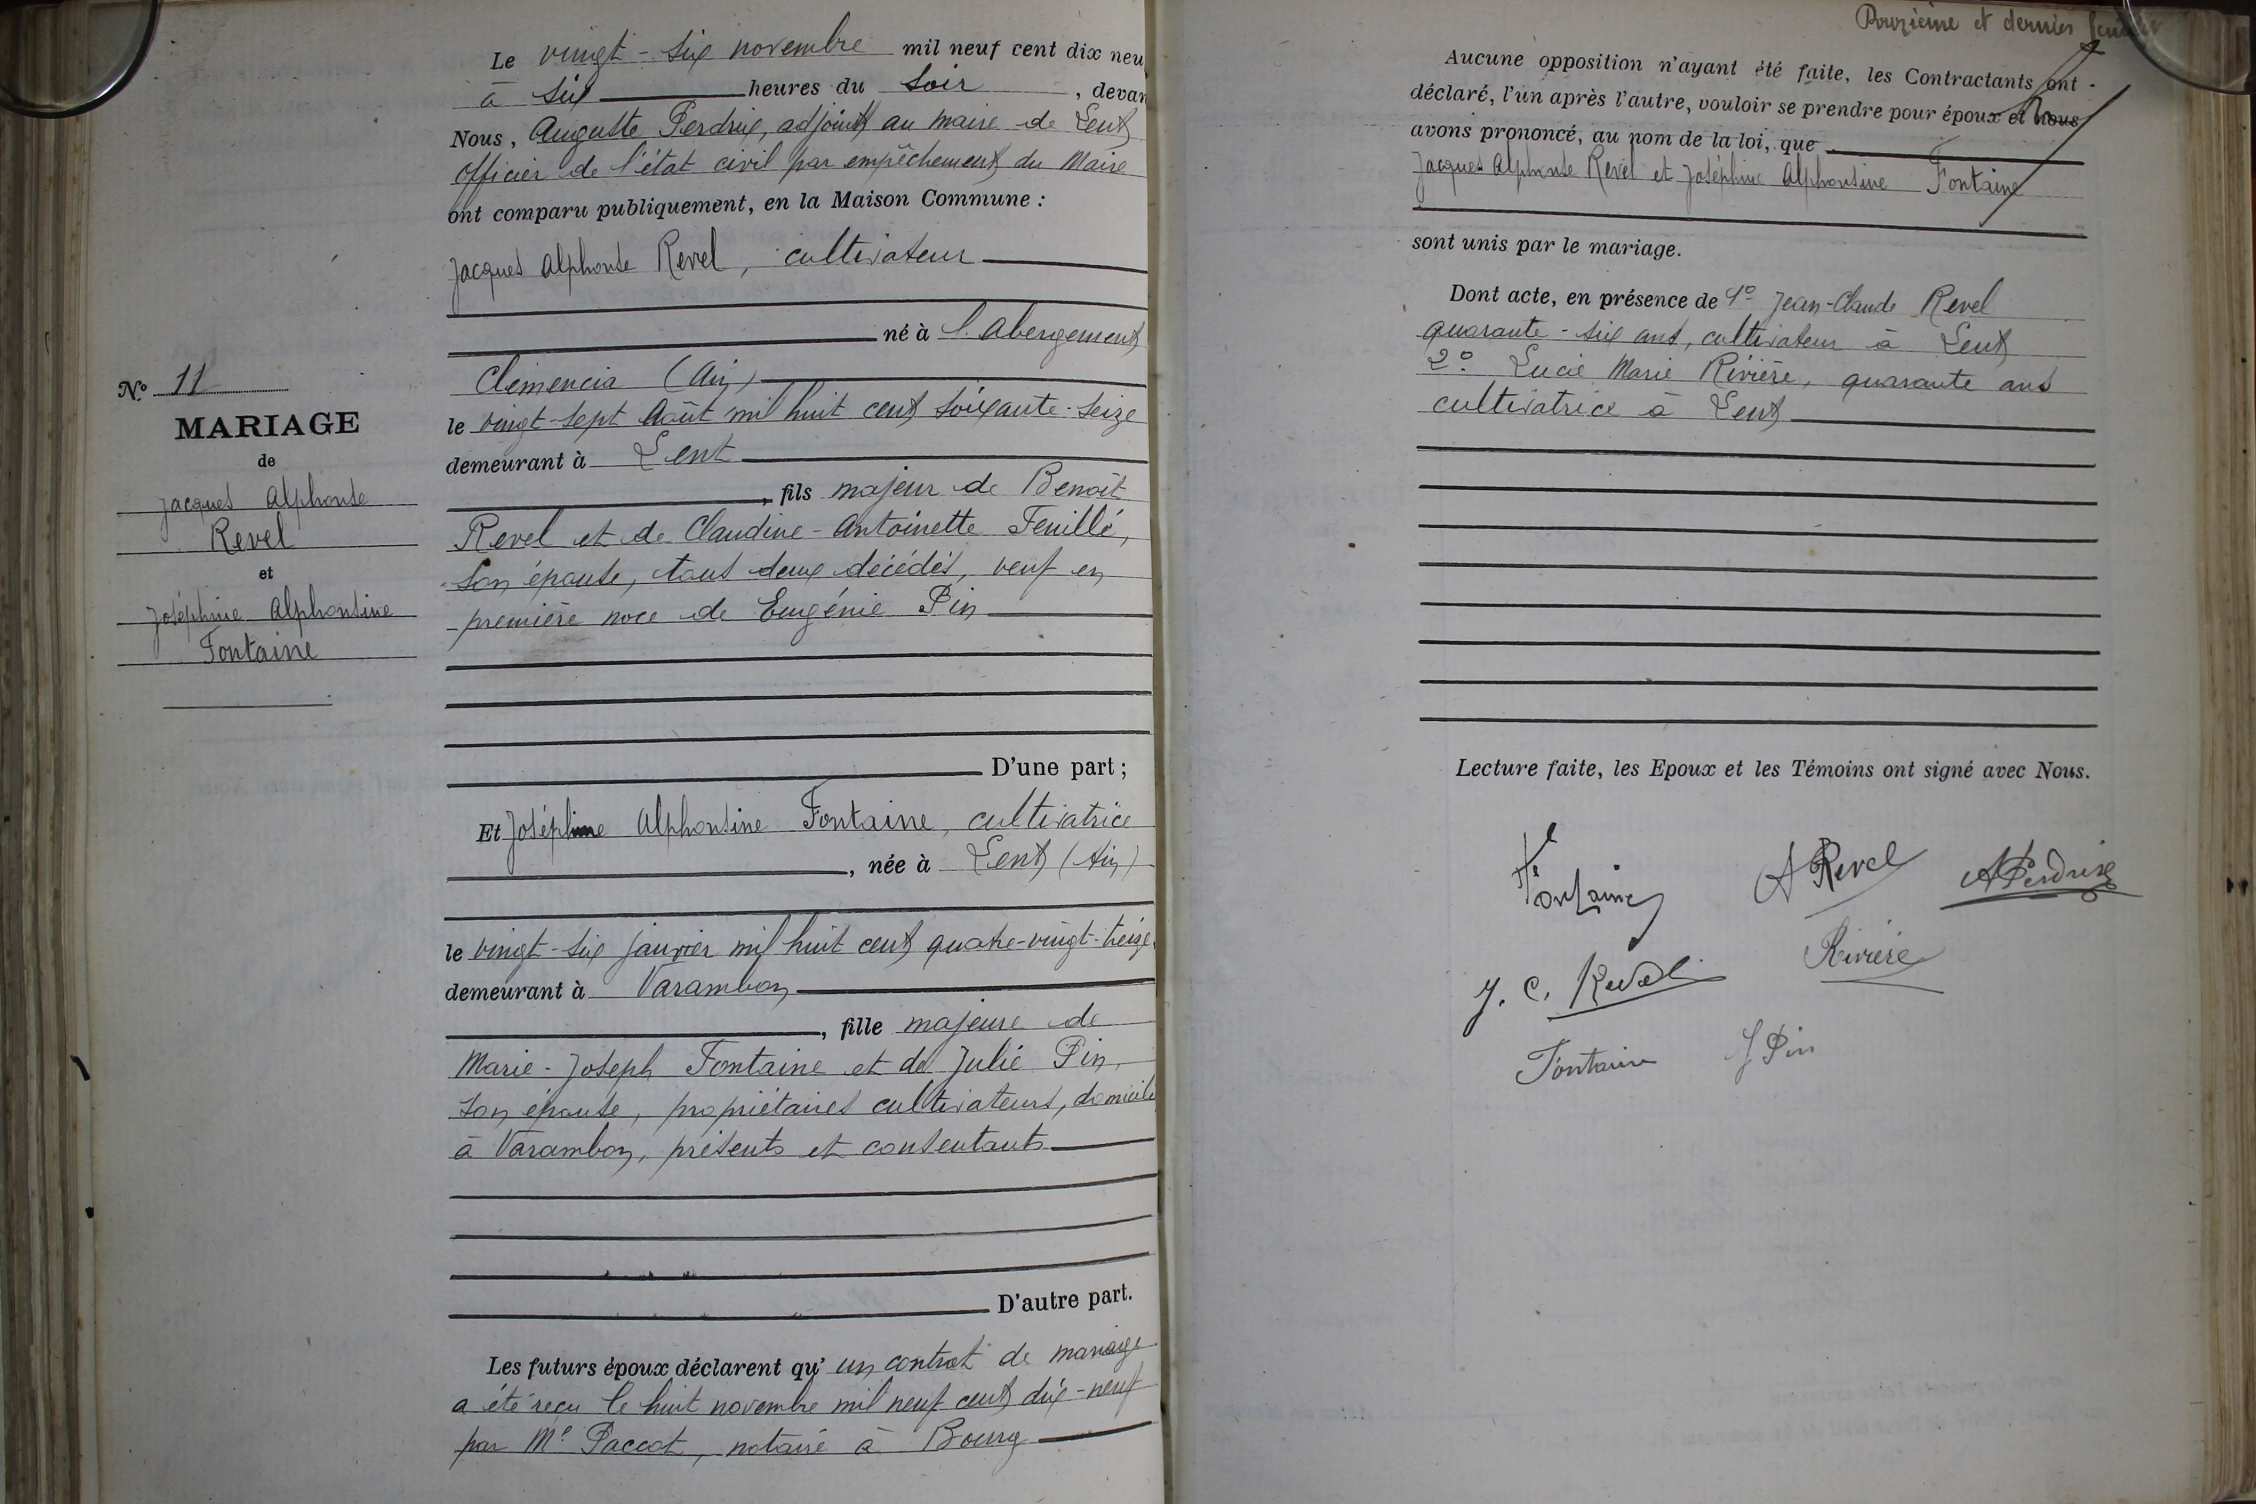 Le vingt-six novembre mil neuf cent dix neu
à six heures du soir, devan
Nous, Auguste Perdrix, adjoint au maire de Lent
officier de l'état civil par empêchement du Maire
ont comparu publiquement, en la Maison Commune :
Jacques Alphonse Revel, cultivateur
né à l'Abergement
Clémencia (Ain)
le vingt-sept Août mil huit cent soixante-seize
demeurant à Lent
, fils majeur de Benoît
Revel et de Claudine-Antoinette Feuillé,
son épouse, tous deux décédés, veuf en
première noce de Eugénie Pin
D'une part ;
Et Joséphine Alphonsine Fontaine, cultivatrice
, née à Lent (Ain)
le vingt-six janvier mil huit cent quatre-vingt-treize
demeurant à Varambon
, fille majeure de
Marie-Joseph Fontaine et de Julie Pin,
son épouse, propriétaires cultivateurs, domicilié
à Varambon, présents et consentants
D'autre part.
Les futurs époux déclarent qu'un contrat de mariage
a été reçu le huit novembre mil neuf cent dix-neuf
par Me Paccot, notaire à Bourg
N.º 11
MARIAGE
de
Jacques Alphonse
Revel
et
Joséphine Alphonsine
Fontaine
et dernier feuillet
Aucune opposition n'ayant été faite, les Contractants ont
déclaré, l'un après l'autre, vouloir se prendre pour époux et nous
avons prononcé, au nom de la loi, que
Jacques Alphonse Revel et Joséphine Alphonsine Fontaine
sont unis par le mariage.
Dont acte, en présence de 1º Jean-Claude Revel
quarante-six ans, cultivateur à Lent
2º Lucie Marie Rivière, quarante ans
cultivatrice à Lent
Lecture faite, les Epoux et les Témoins ont signé avec Nous.
Fontaine
A Revel
A Perdrix
Rivière
J. C. Revel
Fontaine
J Pin